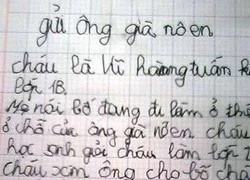 gửi ông già nôen
cháu là Vĩ hoàng tuấn
lớp 1B.
Mẹ nói bố đang đi làm ở
ở chỗ của ông già nôen cháu
học sinh giỏi cháu làm lớp
cháu xin ông cho bố